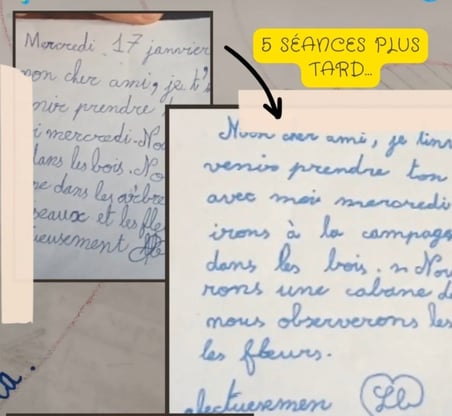 5 SÉANCES PLUS
TARD...
Mercredi 17 janvier
mon cher ami, je t'i
nir prendre
i mercredi. No
dans les bois. No
se dans les arbre
seaux et les fle
ieusement
Mon cher ami, je t'inv
venir prendre ton
avec moi mercredi
irons à la campagn
dans les bois. Nou
rons une cabane d
nous observerons les
les fleurs.
fectueusemen
a.